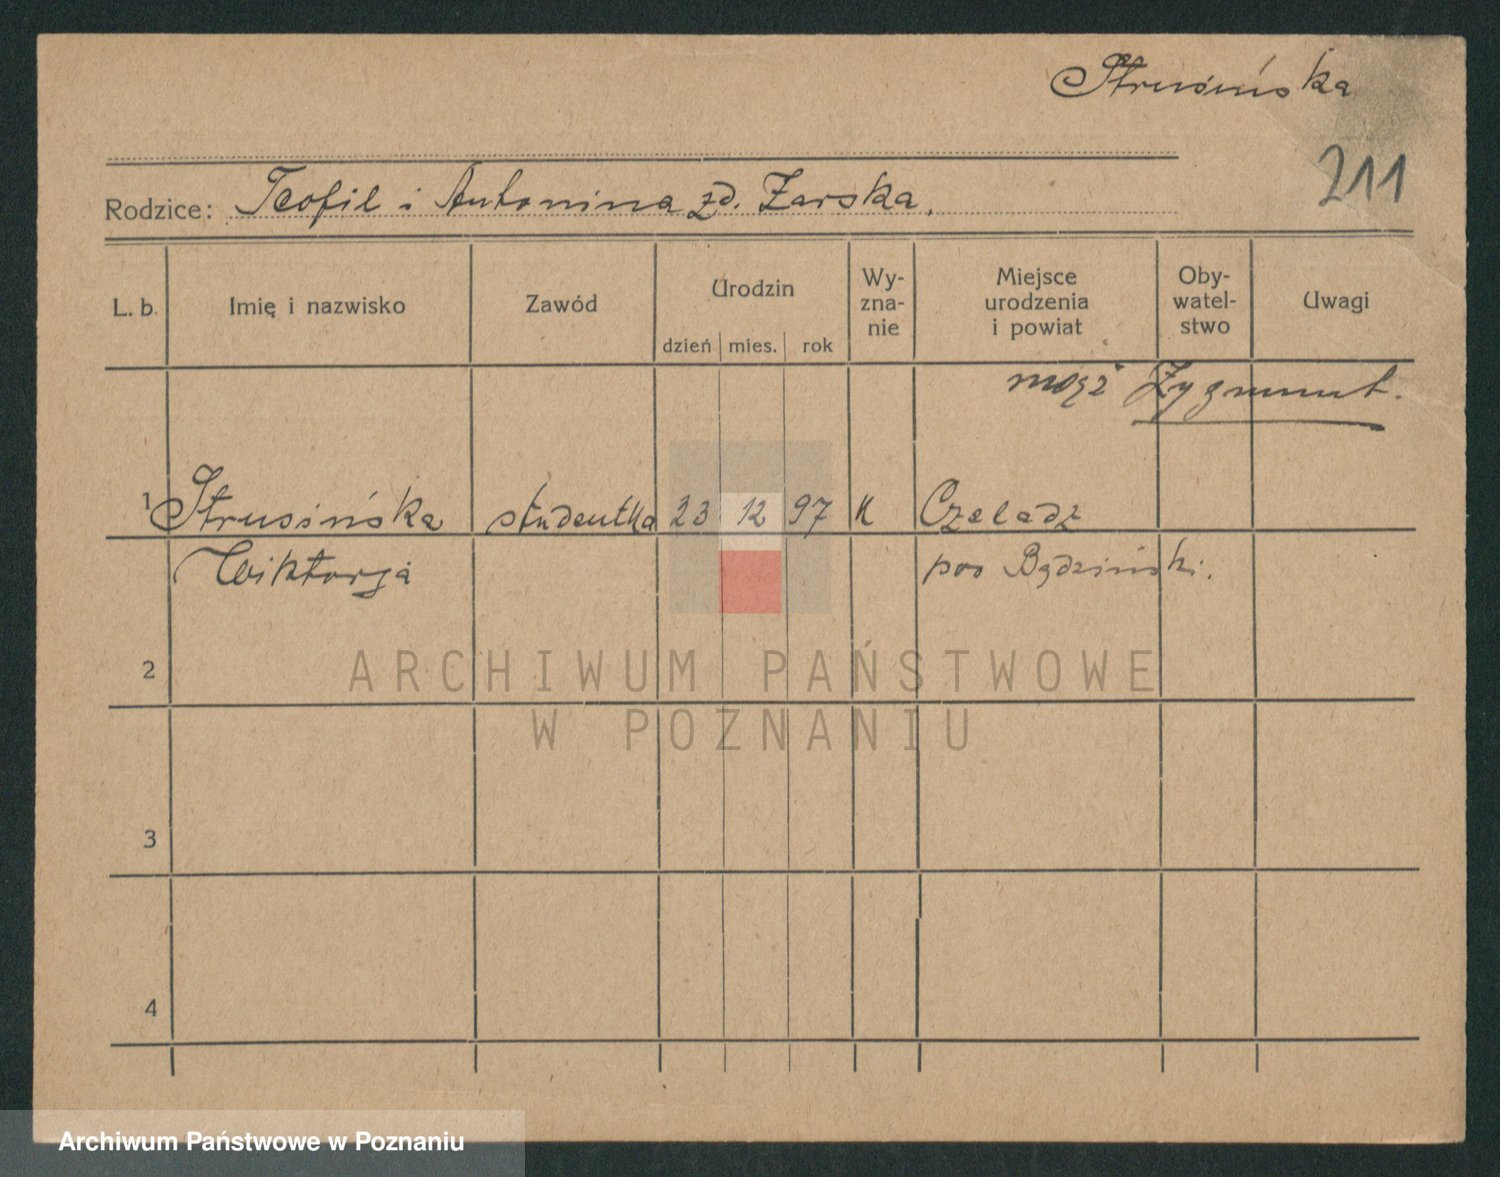 Strusińska
211
Rodzice: Teofil i Antonina zd. Żarska.
L. b. Imię i nazwisko Zawód Urodzin dzień mies. rok Wy-zna-nie Miejsce urodzenia i powiat Oby-watel-stwo Uwagi
mąż Zygmunt.
1 Strusińska studentka 23 12 97 k Czeladź
Wiktorja pow Będziński.
2
ARCHIWUM PAŃSTWOWE
W POZNANIU
3
4
Archiwum Państwowe w Poznaniu